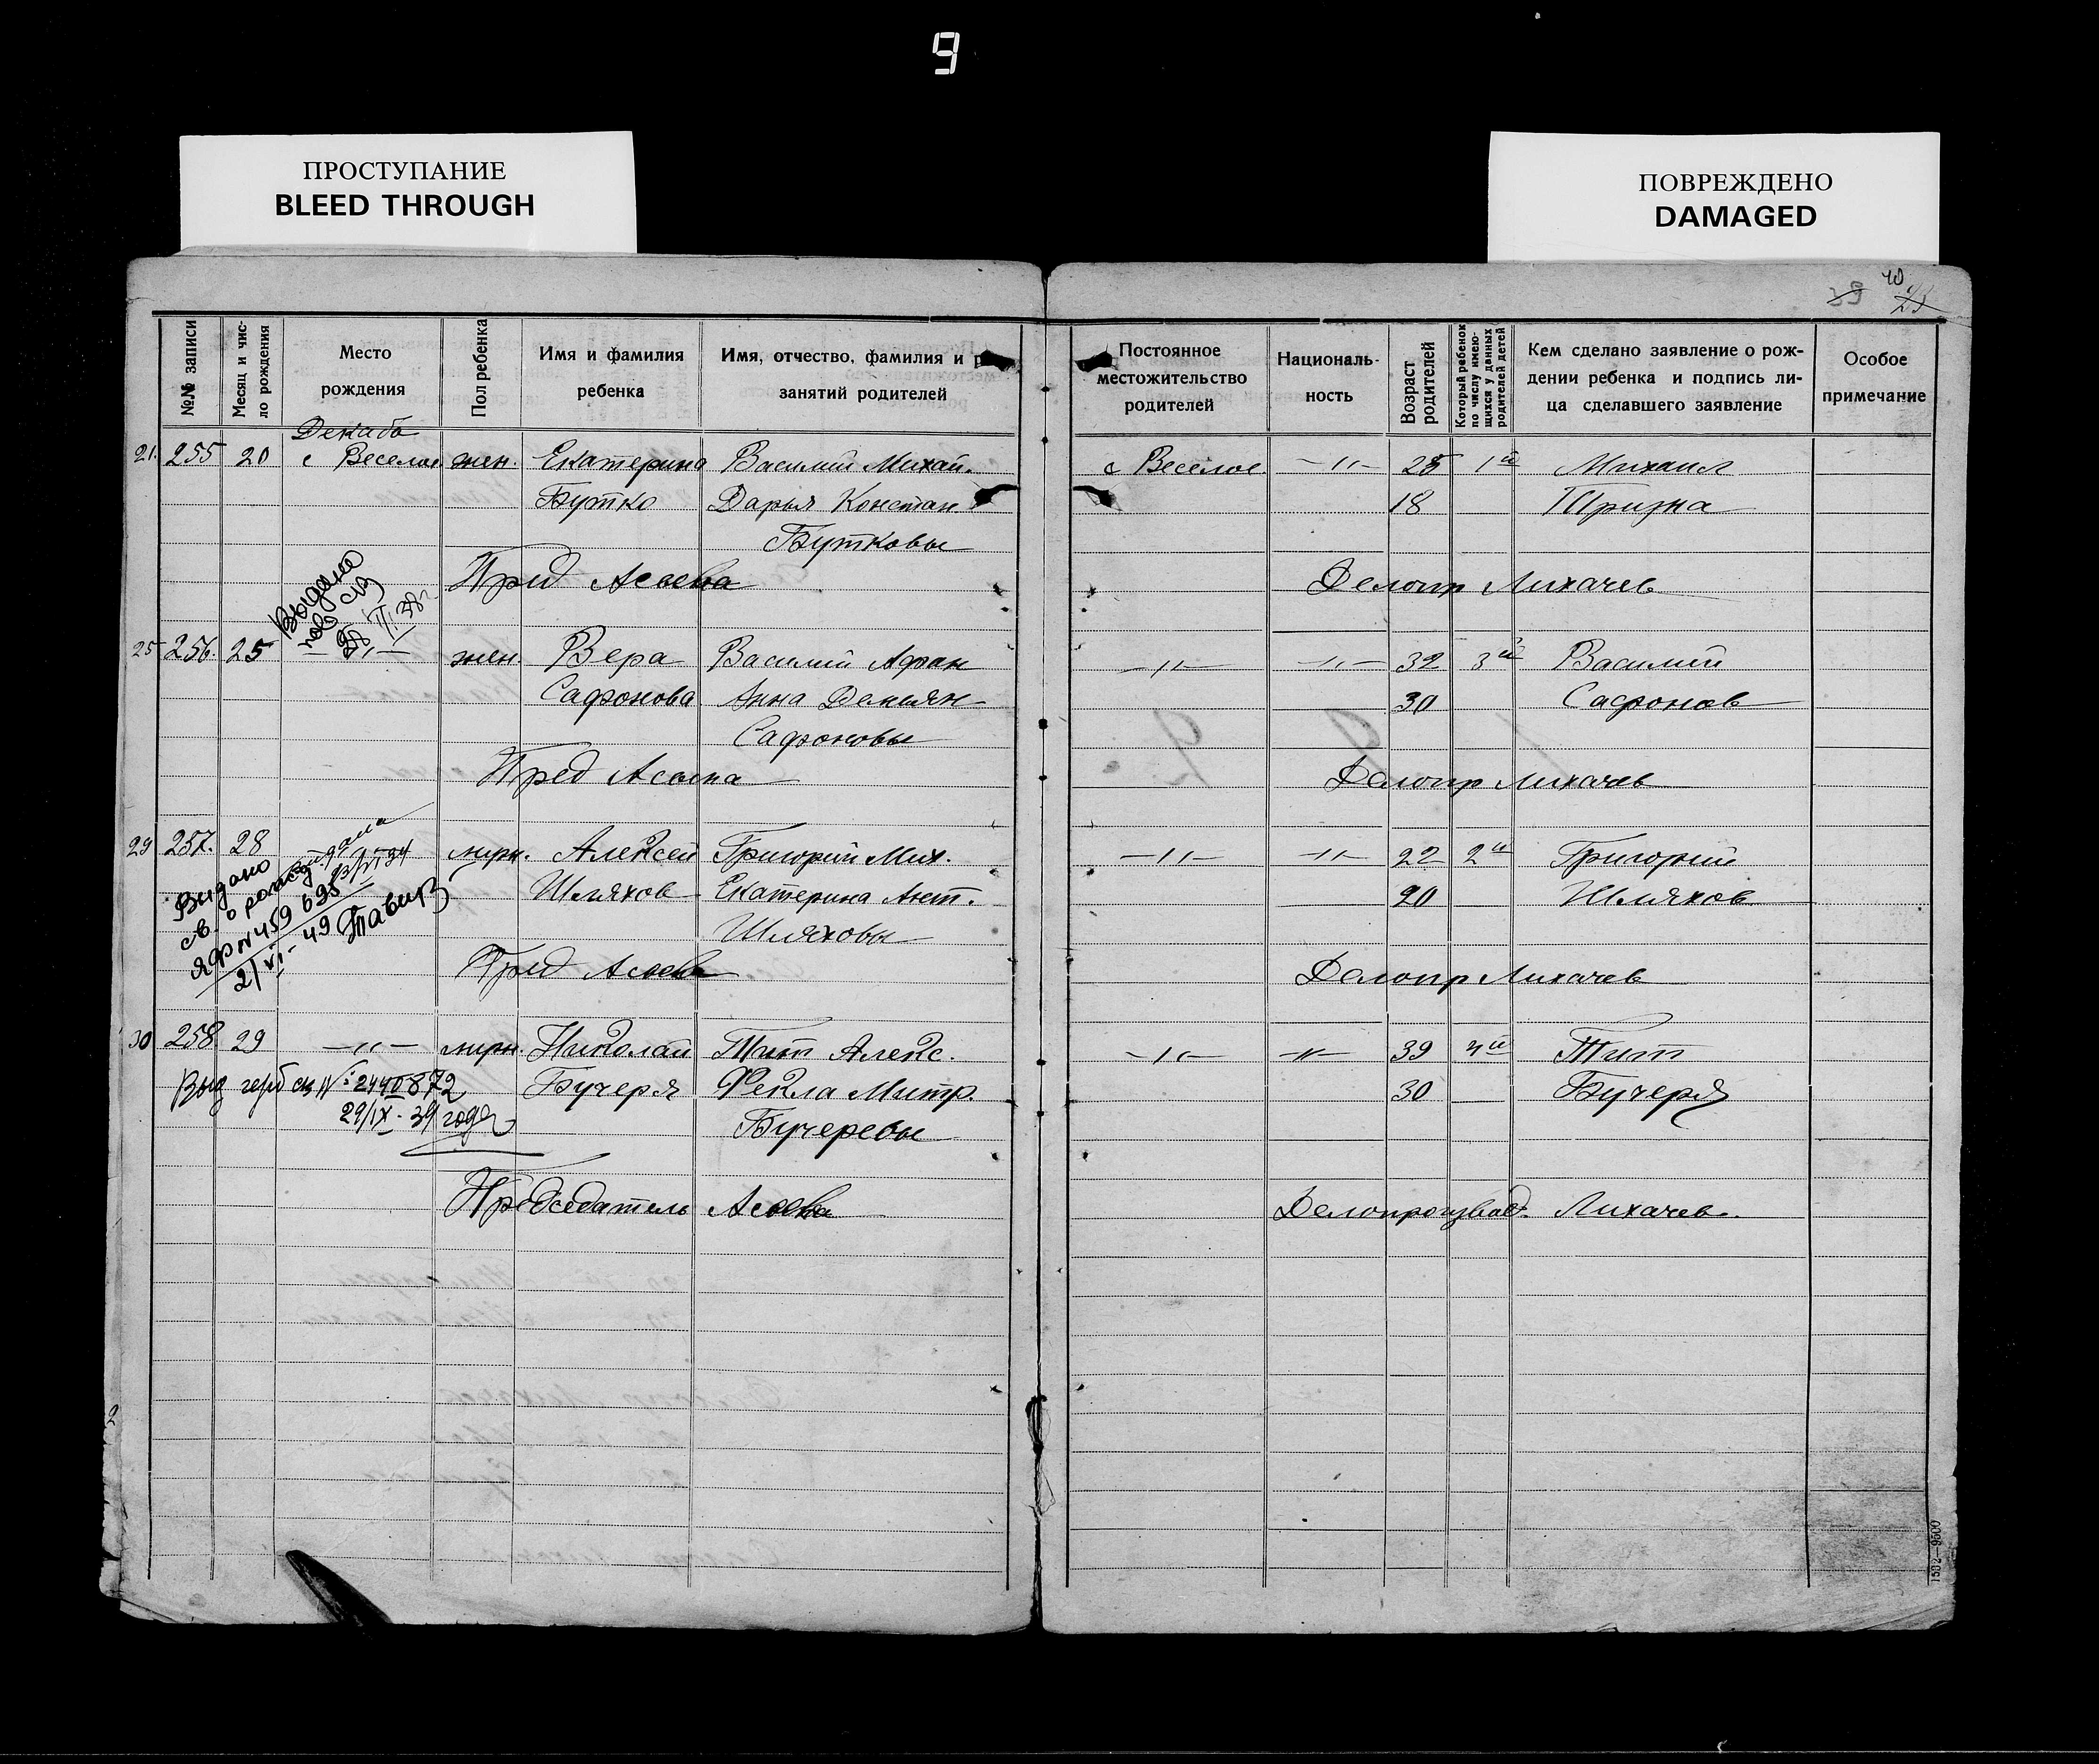 9
ПРОСТУПАНИЕ
BLEED THROUGH
ПОВРЕЖДЕНО
DAMAGED
40
№№ записи
Месяц и чис-
ло рождения
Место
рождения
Пол ребенка
Имя и фамилия
ребенка
Имя, отчество, фамилия и р
занятий родителей
Постоянное
местожительство
родителей
Националь-
ность
Возраст
родителей
Который ребенок
по числу имею-
щихся у данных
родителей детей
Кем сделано заявление о рож-
дении ребенка и подпись ли-
ца сделавшего заявление
Особое
примечание
Декабр
21. 255 20 с Веселое жен. Екатерина Василий Михай. с Веселое —〃— 25 1й Михаил
Бутко Дарья Констан. 18 Тризна
Бутковы
Пред Асеева Делопр Лихачев
Выдано
пов. св
25 256. 25 —〃— жен. Вера Василий Афан —〃— —〃— 32 3й Василий
Сафонова Анна Демьян 30 Сафонов
Сафоновы
Пред Асеева Делопр Лихачев
29 257. 28 мужч. Алексей Григорий Мих. —〃— —〃— 22 2й Григорий
Шляхов Екатерина Ант. 20 Шляхов
Шляховы
Выдано
св. о рожд
ЯФ № 459 698
2/VI - 49
Пред Асеева Делопр Лихачев
30 258 29 —〃— мужч. Николай Тит Алекс. —〃— —〃— 39 4й Тит
Выд герб св № 2440872 Бучеря Фекла Митр. 30 Бучеря
29/IX - 39 года Бучеревы
Председатель Асеева Делопроизвод. Лихачев.
1532—9500